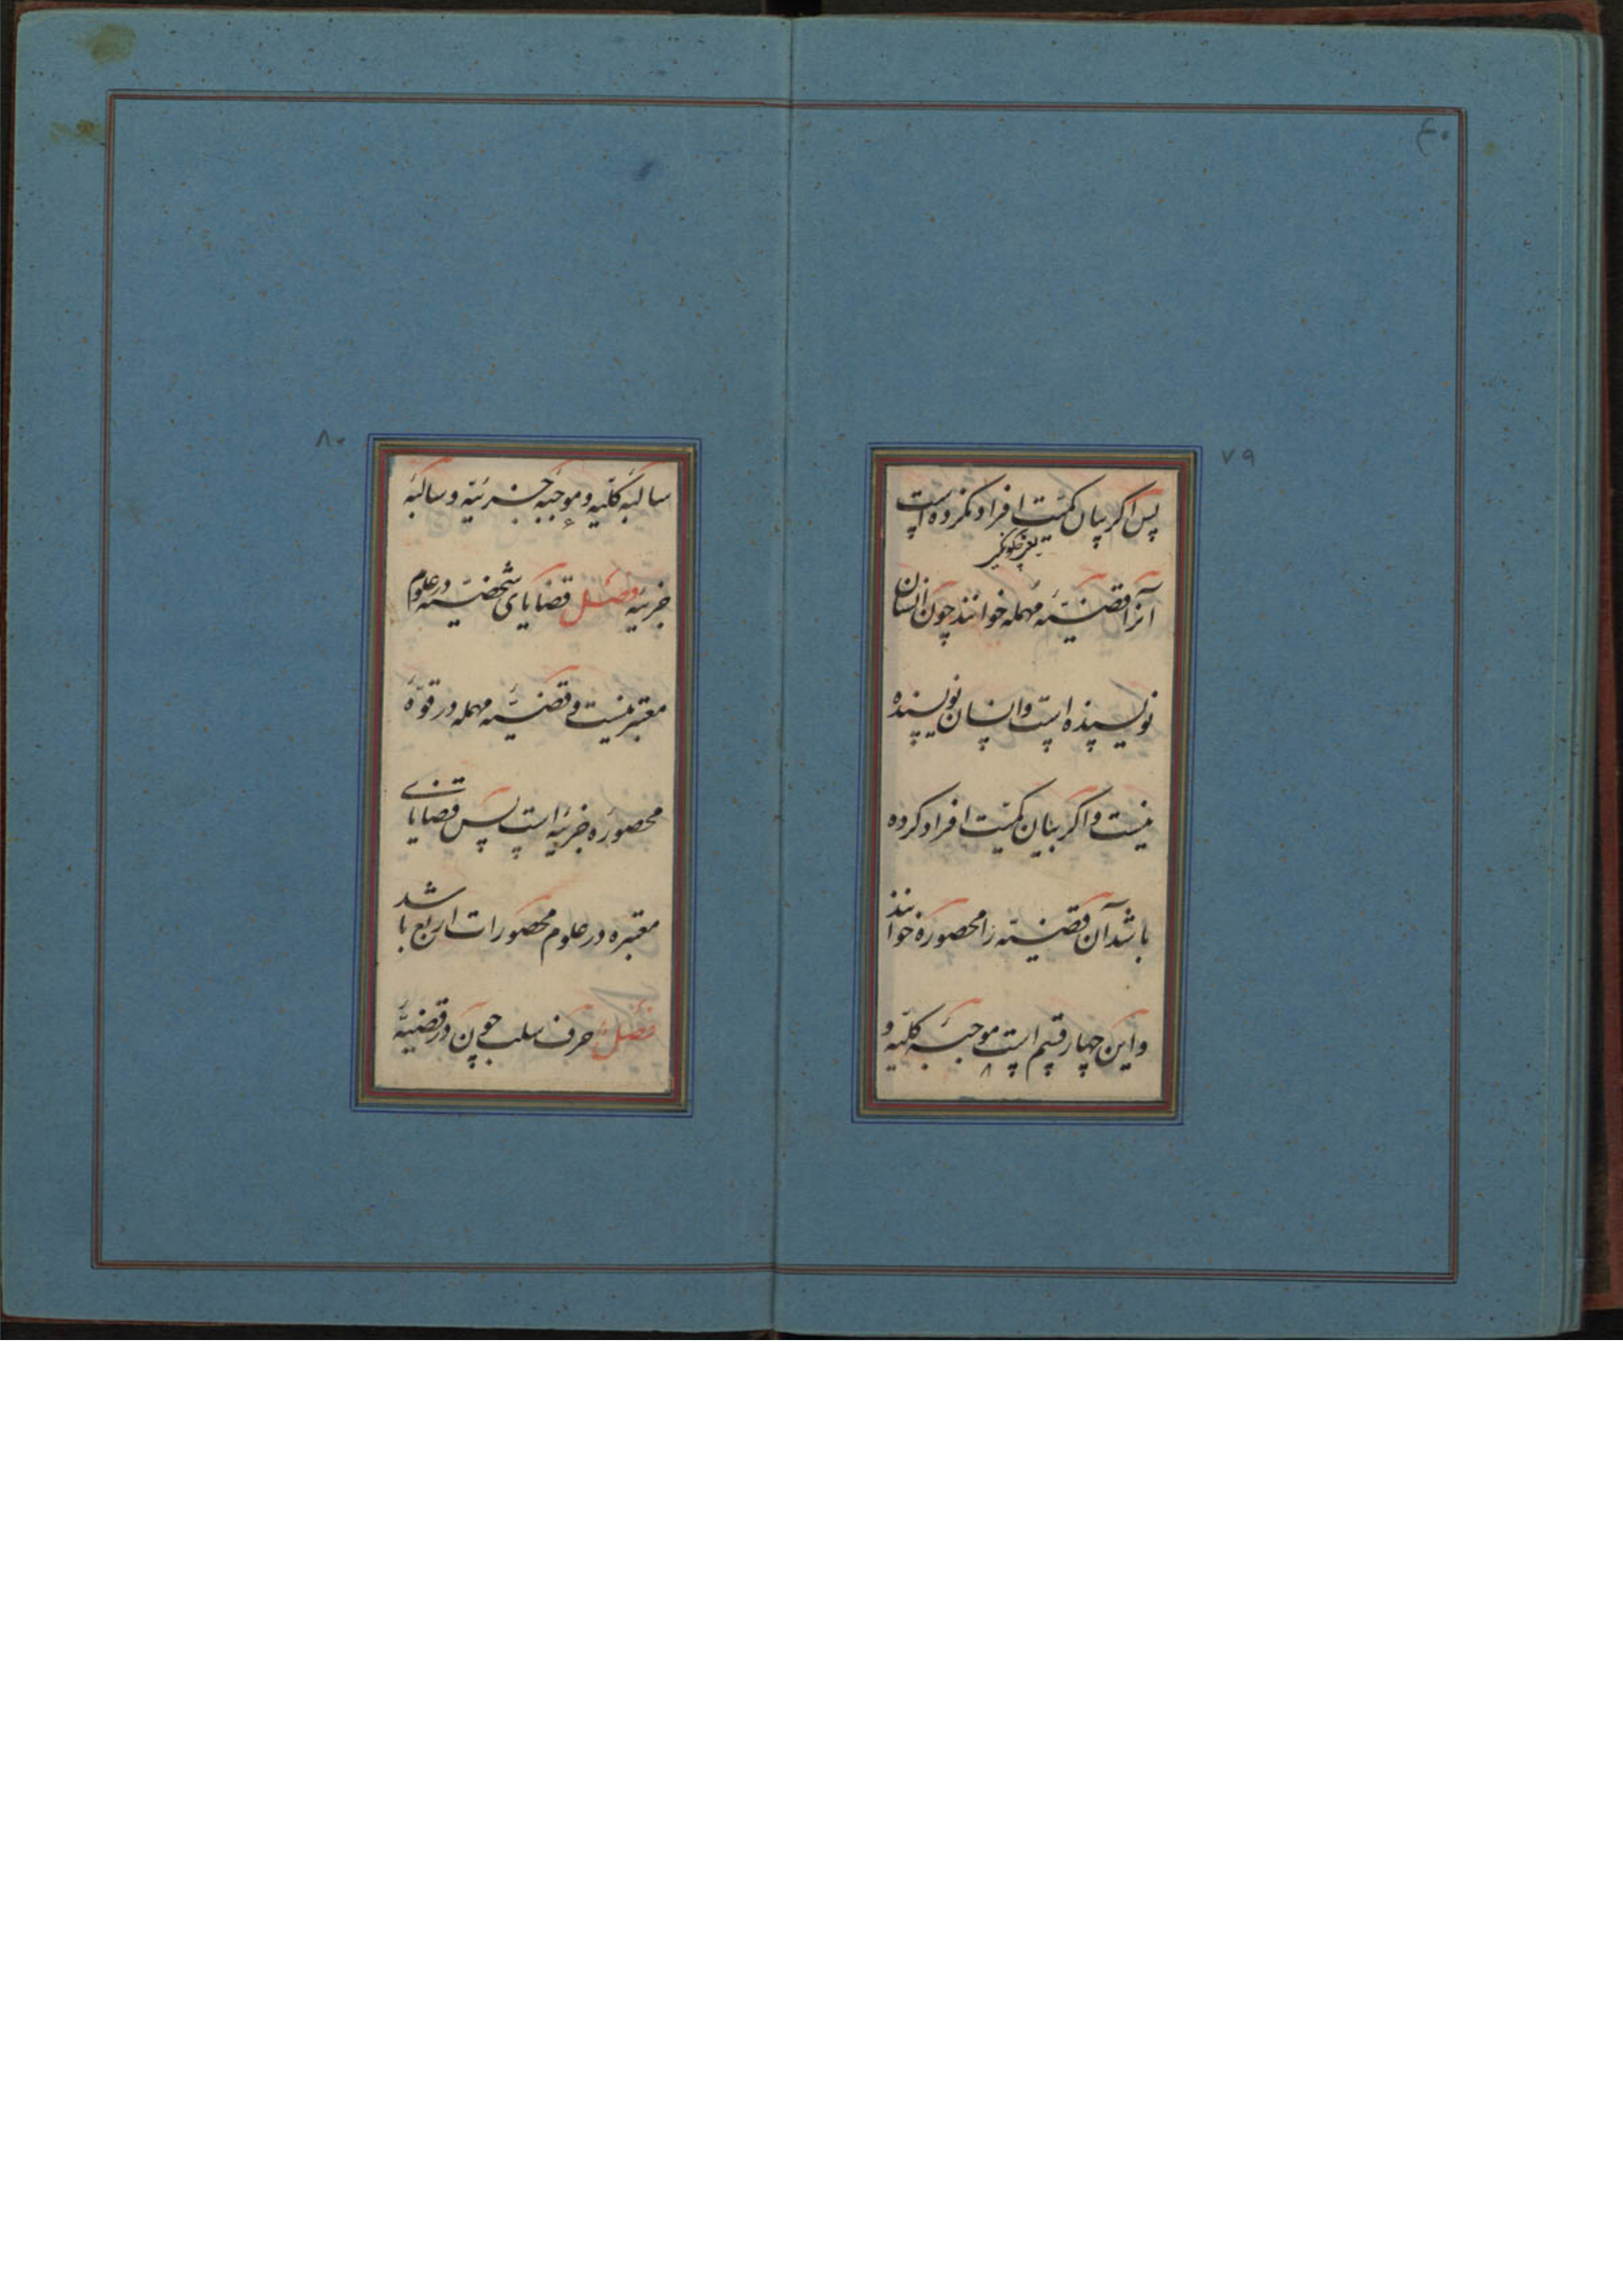 ۴۰
۷۹
پس اگر بیان کمیّت افراد نکرده است
آنرا قضیّهٔ مهمله خوانند چون انسان
نویسنده است و انسان نویسنده
نیست و اگر بیان کمیّت افراد کرده
باشد آن قضیّه را محصوره خوانند
و این چهار قسم است موجبهٔ کلیّه و
۸۰
سالبهٔ کلیّه و موجبهٔ جزئیّه و سالبهٔ
جزئیّه فصل قضایای شخصیّه در علوم
معتبر نیست و قضیّهٔ مهمله در قوّهٔ
محصورهٔ جزئیّه است پس قضایای
معتبره در علوم محصورات اربع باشد
فصل حرف سلب چون در قضیّهٔ